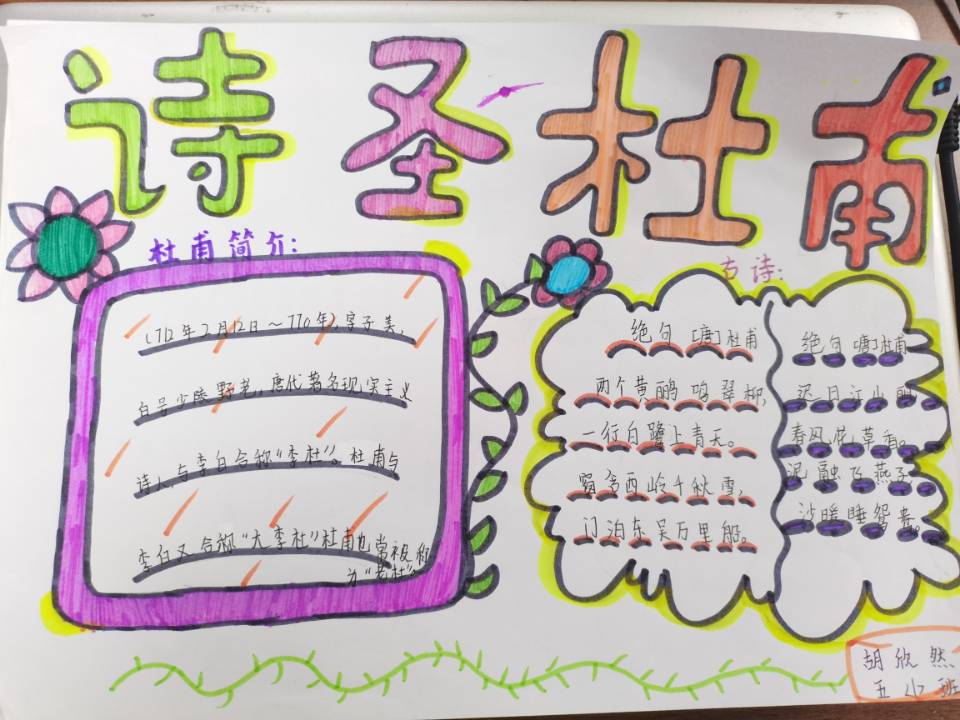 诗圣杜甫
杜甫简介:
(712年2月12日～770年),字子美,
自号少陵野老,唐代著名现实主义
诗人,与李白合称“李杜”。杜甫与
李白又合称“大李杜”杜甫也常被称
为“老杜”
古诗:
绝句 [唐]杜甫
两个黄鹂鸣翠柳,
一行白鹭上青天。
窗含西岭千秋雪,
门泊东吴万里船。
绝句 [唐]杜甫
迟日江山丽,
春风花草香。
泥融飞燕子,
沙暖睡鸳鸯。
胡欣然
五小班